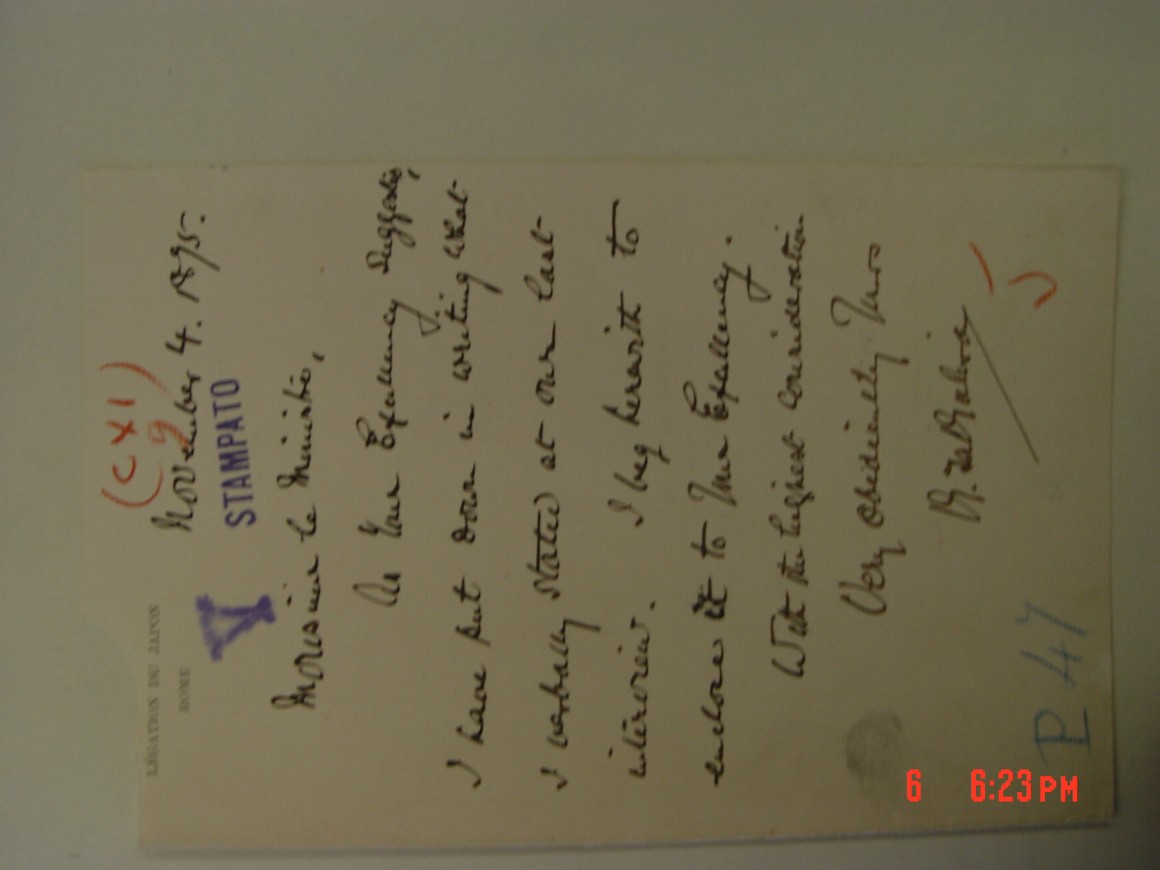 LÉGATION DU JAPON
ROME
(CXI)
9
November 4. 1895.
V
STAMPATO
Monsieur le Ministre,
As Your Excellency suggests,
I have put down in writing what
I verbally stated at our last
interview. I beg herewith to
enclose it to Your Excellency.
With the highest consideration
Very obediently Yours
P 47
6 6:23PM